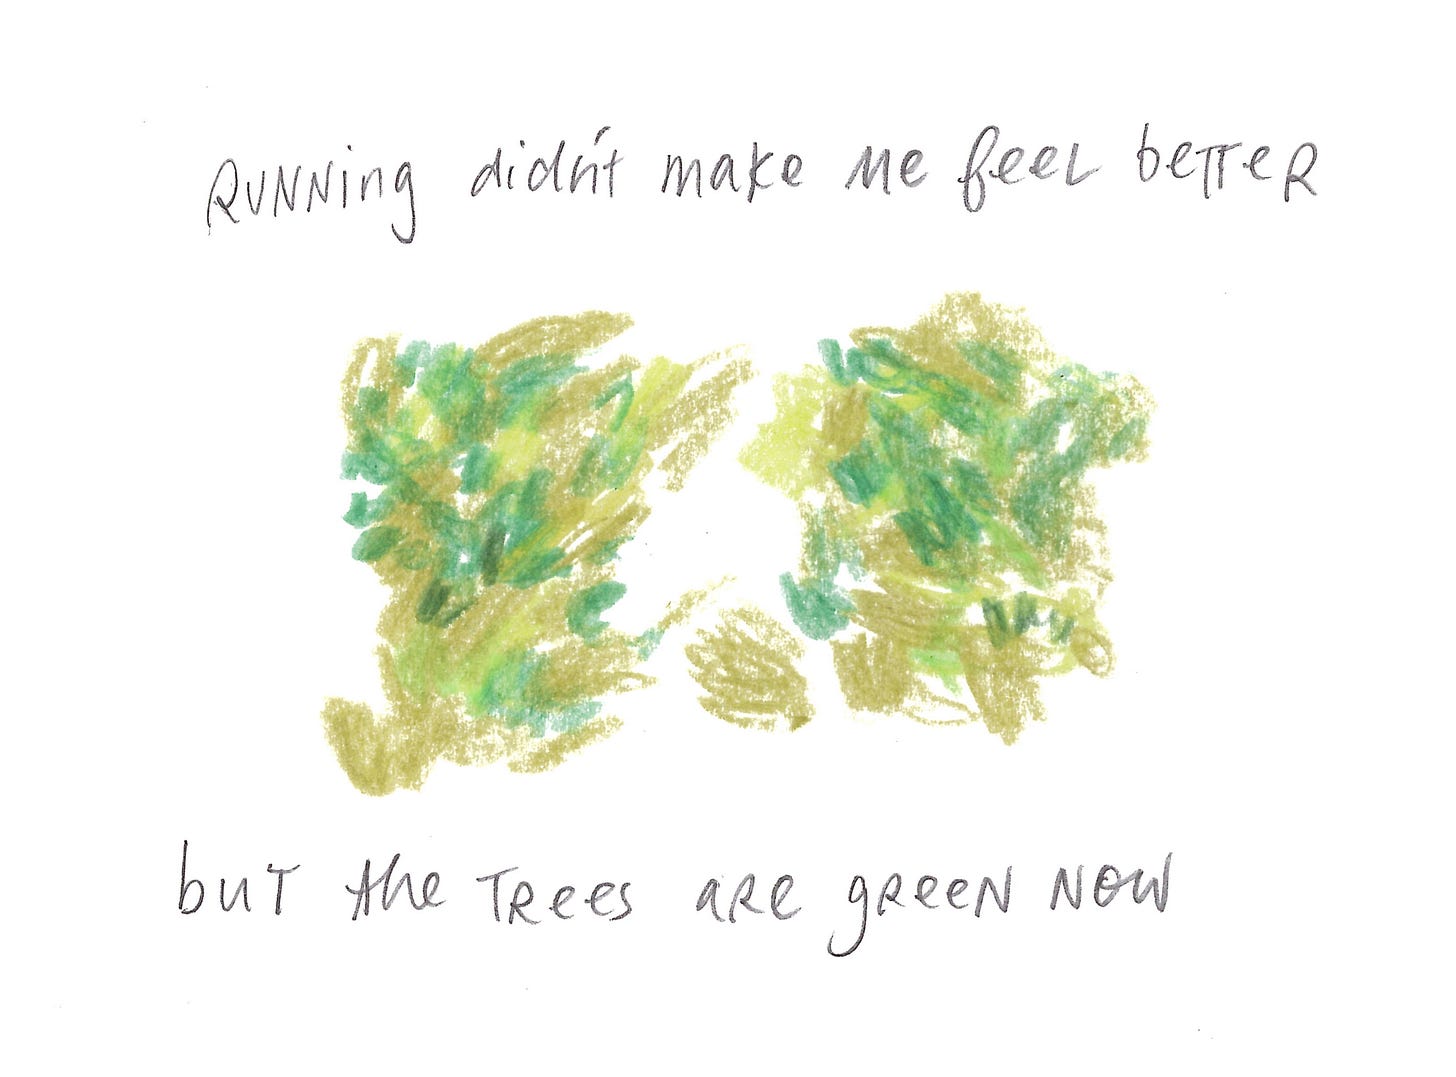 RUNNing didn't make Me feel beTTeR
buT the TRees aRe gReeN NoW